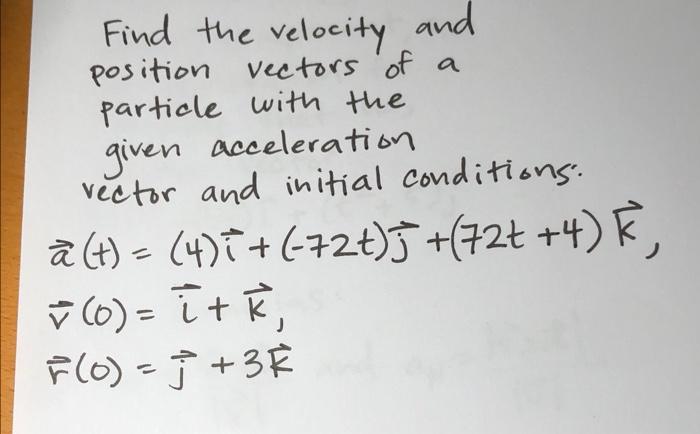 Find the velocity and
position vectors of a
particle with the
given acceleration
vector and initial conditions:
a⃗(t) = (4)i⃗ + (-72t)j⃗ + (72t + 4) k⃗,
v⃗(0) = i⃗ + k⃗,
r⃗(0) = j⃗ + 3k⃗